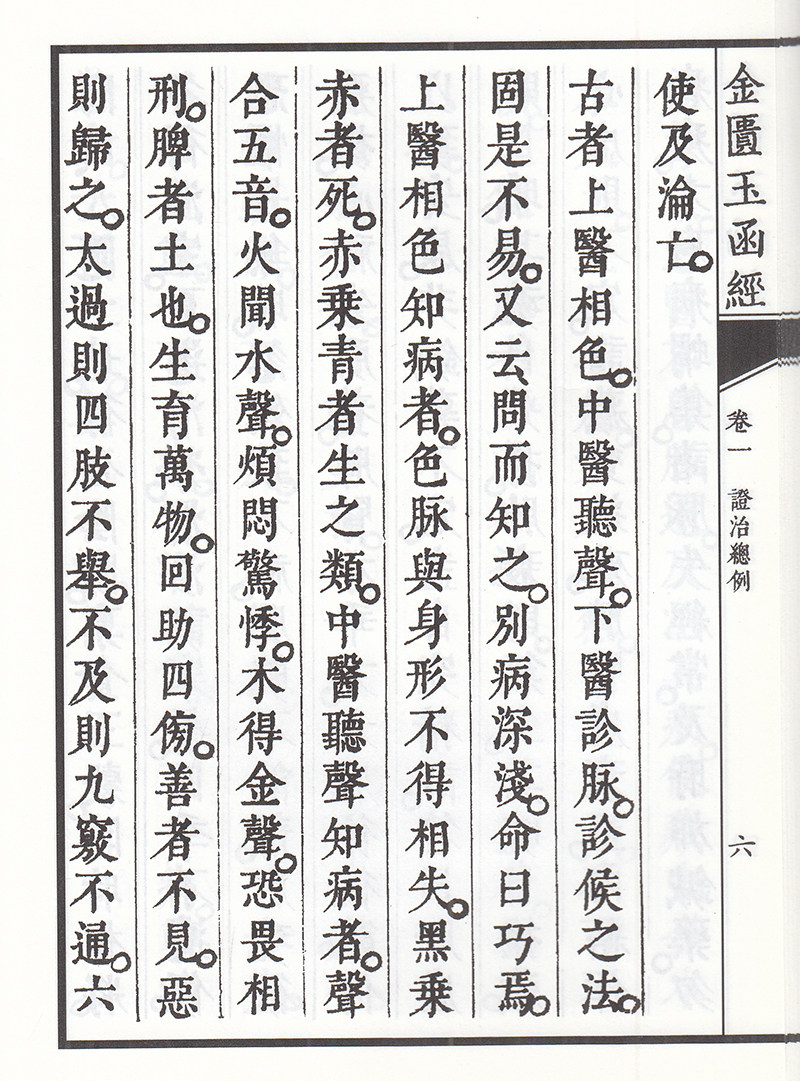 金匱玉函經
卷一 證治總例
六
使及淪亡。
古者上醫相色。中醫聽聲。下醫診脉。診候之法。
固是不易。又云問而知之。別病深淺。命曰巧焉。
上醫相色知病者。色脉與身形不得相失。黑乗
赤者死。赤乗青者生之類。中醫聽聲知病者。聲
合五音。火聞水聲。煩悶驚悸。木得金聲。恐畏相
刑。脾者土也。生育萬物。回助四傍。善者不見。惡
則歸之。太過則四肢不舉。不及則九竅不通。六